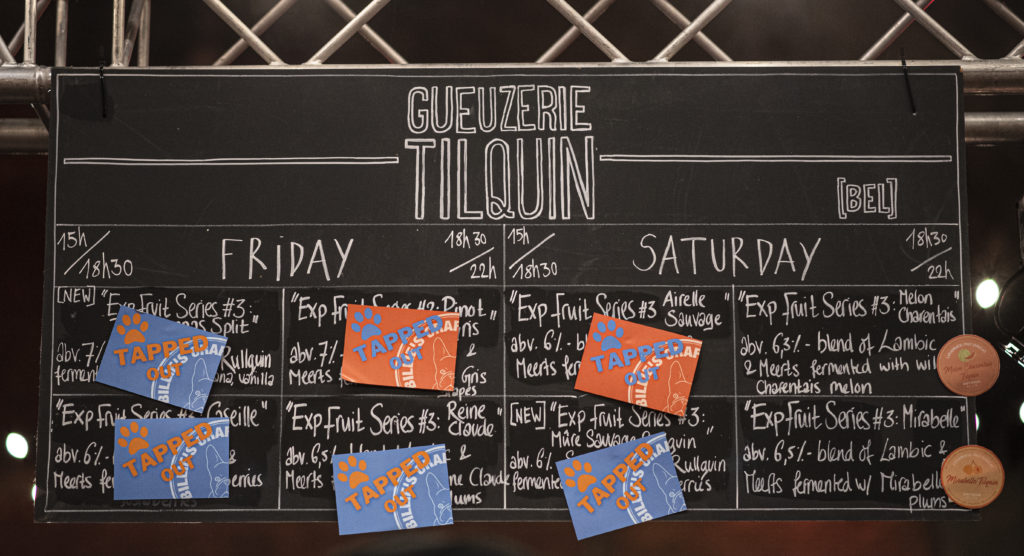 GUEUZERIE
TILQUIN
[BEL]
15h / 18h30
FRIDAY
18h30 / 22h
15h / 18h30
SATURDAY
18h30 / 22h
[NEW] "Exp Fruit Series #3:
Split"
abv. 7%
Rullquin
ferment
vanilla
TAPPED
OUT
BILLIE'S CRAF
"Exp Fruit Series #3: Pinot
Gris
abv. 7%
Meerts
Gris
TAPPED
OUT
BILLIE'S CRAF
"Exp Fruit Series #3 Airelle
Sauvage"
abv. 6%
Meerts fe
TAPPED
OUT
BILLIE'S CRAF
"Exp Fruit Series #3: Melon
Charentais"
abv 6,3% - blend of Lambic
& Meerts fermented with wil
Charentais melon
"Exp Fruit Series #3: Caseille"
abv. 6%
Meerts f
berries
TAPPED
OUT
BILLIE'S CRAF
"Exp Fruit Series #3: Reine
Claude
abv. 6,5%
Meerts
ne Claude
Plums
TAPPED
OUT
BILLIE'S CRAF
[NEW] "Exp Fruit Series #3:
Mûre Sauvage quin"
abv. 6%
Rullquin
fermente
TAPPED
OUT
BILLIE'S CRAF
"Exp Fruit Series #3: Mirabelle"
abv. 6,5% - blend of Lambic &
Meerts fermented w/ Mirabelle
Plums
Mirabelle Tilquin